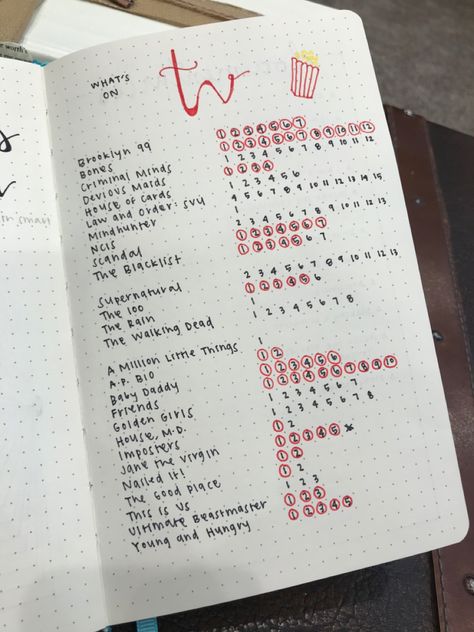 WHAT'S ON
tv
Brooklyn 99 1 2 3 4 5 6 7
Bones 1 2 3 4 5 6 7 8 9 10 11 12
Criminal Minds 1 2 3 4 5 6 7 8 9 10 11 12
Devious Maids 1 2 3 4
House of Cards 1 2 3 4 5 6
Law and Order: SVU 4 5 6 7 8 9 10 11 12 13 14 15
Mindhunter 1
NCIS 2 3 4 5 6 7 8 9 10 11 12 13
Scandal 1 2 3 4 5 6 7
The Blacklist 1 2 3 4 5 6 7
Supernatural 2 3 4 5 6 7 8 9 10 11 12 13
The 100 1 2 3 4 5 6
The Rain 1
The Walking Dead 1 2 3 4 5 6 7 8
A Million Little Things 1
A.P. BIO 1 2
Baby Daddy 1 2 3 4 5 6
Friends 1 2 3 4 5 6 7 8 9 10
Golden Girls 1 2 3 4 5 6 7
House, M.D. 1 2 3 4 5 6 7 8
Imposters 1 2
Jane the Virgin 1 2 3 4 5 *
Nailed It! 1 2
The Good Place 1 2
This is Us 1 2 3
Ultimate Beastmaster 1 2 3
Young and Hungry 1 2 3 4 5